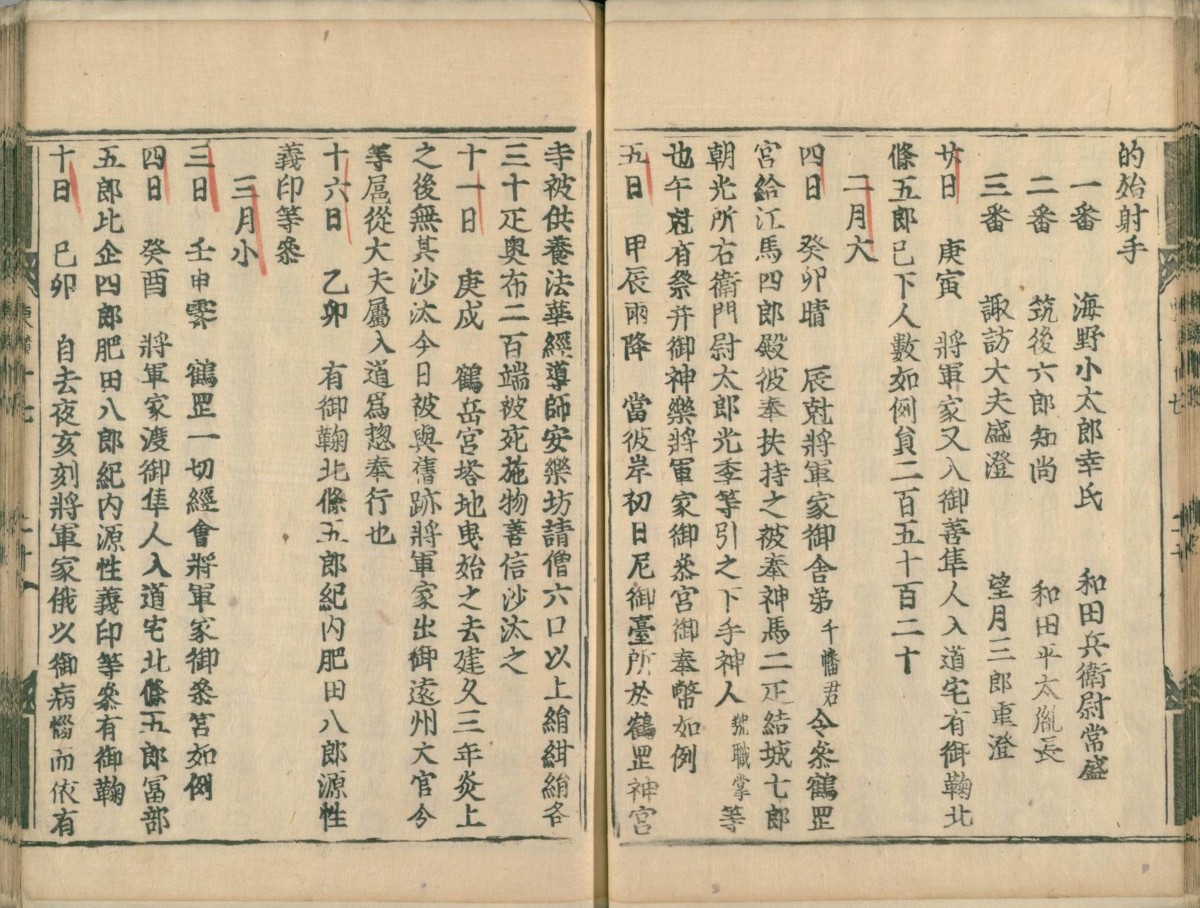 的始射手
一番 海野小太郎幸氏 和田兵衛尉常盛
二番 筑後六郎知尚 和田平太胤長
三番 諏訪大夫盛澄 望月三郎重澄
廿日 庚寅 將軍家又入御善隼人入道宅有御鞠北
條五郎已下人數如例負二百五十百二十
二月大
四日 癸卯晴 辰尅將軍家御舎弟千幡君令叅鶴罡
宮給江馬四郎殿彼奉扶持之被奉神馬二疋結城七郎
朝光所右衛門尉太郎光季等引之下手神人號職掌等
也午尅有祭并御神樂將軍家御叅宮御奉幣如例
五日 甲辰雨降 當彼岸初日尼御臺所於鶴罡神宮
寺被供養法華經導師安樂坊請僧六口以上絹紺絹各
三十疋奥布二百端被宛施物善信沙汰之
十一日 庚戌 鶴岳宮塔地曳始之去建久三年炎上
之後無其沙汰今日被興舊跡將軍家出御遠州大官今
等扈從大夫屬入道爲惣奉行也
十六日 乙卯 有御鞠北條五郎紀内肥田八郎源性
義印等叅
三月小
三日 壬申霽 鶴罡一切經會將軍家御叅宮如例
四日 癸酉 將軍家渡御隼人入道宅北條五郎冨部
五郎比企四郎肥田八郎紀内源性義印等叅有御鞠
十日 己卯 自去夜亥刻將軍家俄以御病惱而依有